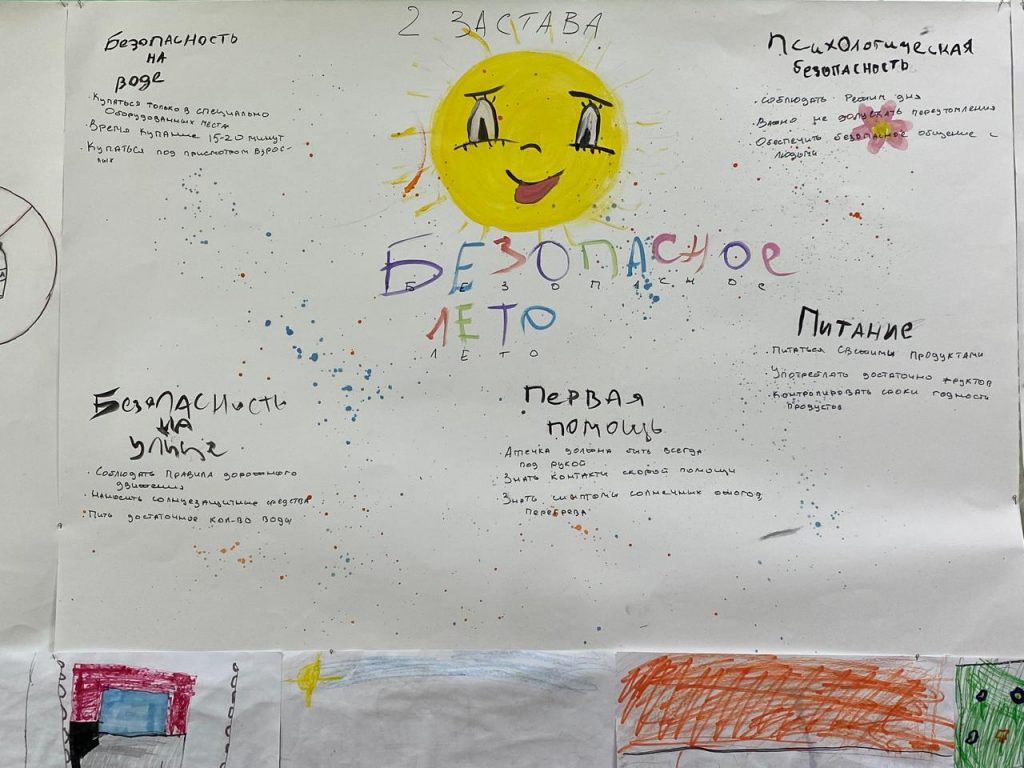 2 ЗАСТАВА
Безопасность
на
воде
· Купаться только в специально
оборудованных места
· Время купание 15-20 минут
· Купаться под присмотром взрос-
лых
Психологическая
безопасность
· Соблюдать режим дня
· Важно не допускать переутомления
· Обеспечить безопасное общение с
людьми
БЕЗОПАСНОЕ
БЕЗОПАСНОЕ
ЛЕТО
ЛЕТО
Питание
· Питаться свежими продуктами
· Употреблять достаточно фруктов
· Контролировать сроки годность
продуктов
Безопасность
на
улице
· Соблюдать правила дорожного
движения
· Наносить солнцезащитные средства
· Пить достаточное кол-во воды
Первая
помощь
· Аптечка должна быть всегда
под рукой
· Знать контакты скорой помощи
· Знать симптомы солнечных ожогов,
перегрева